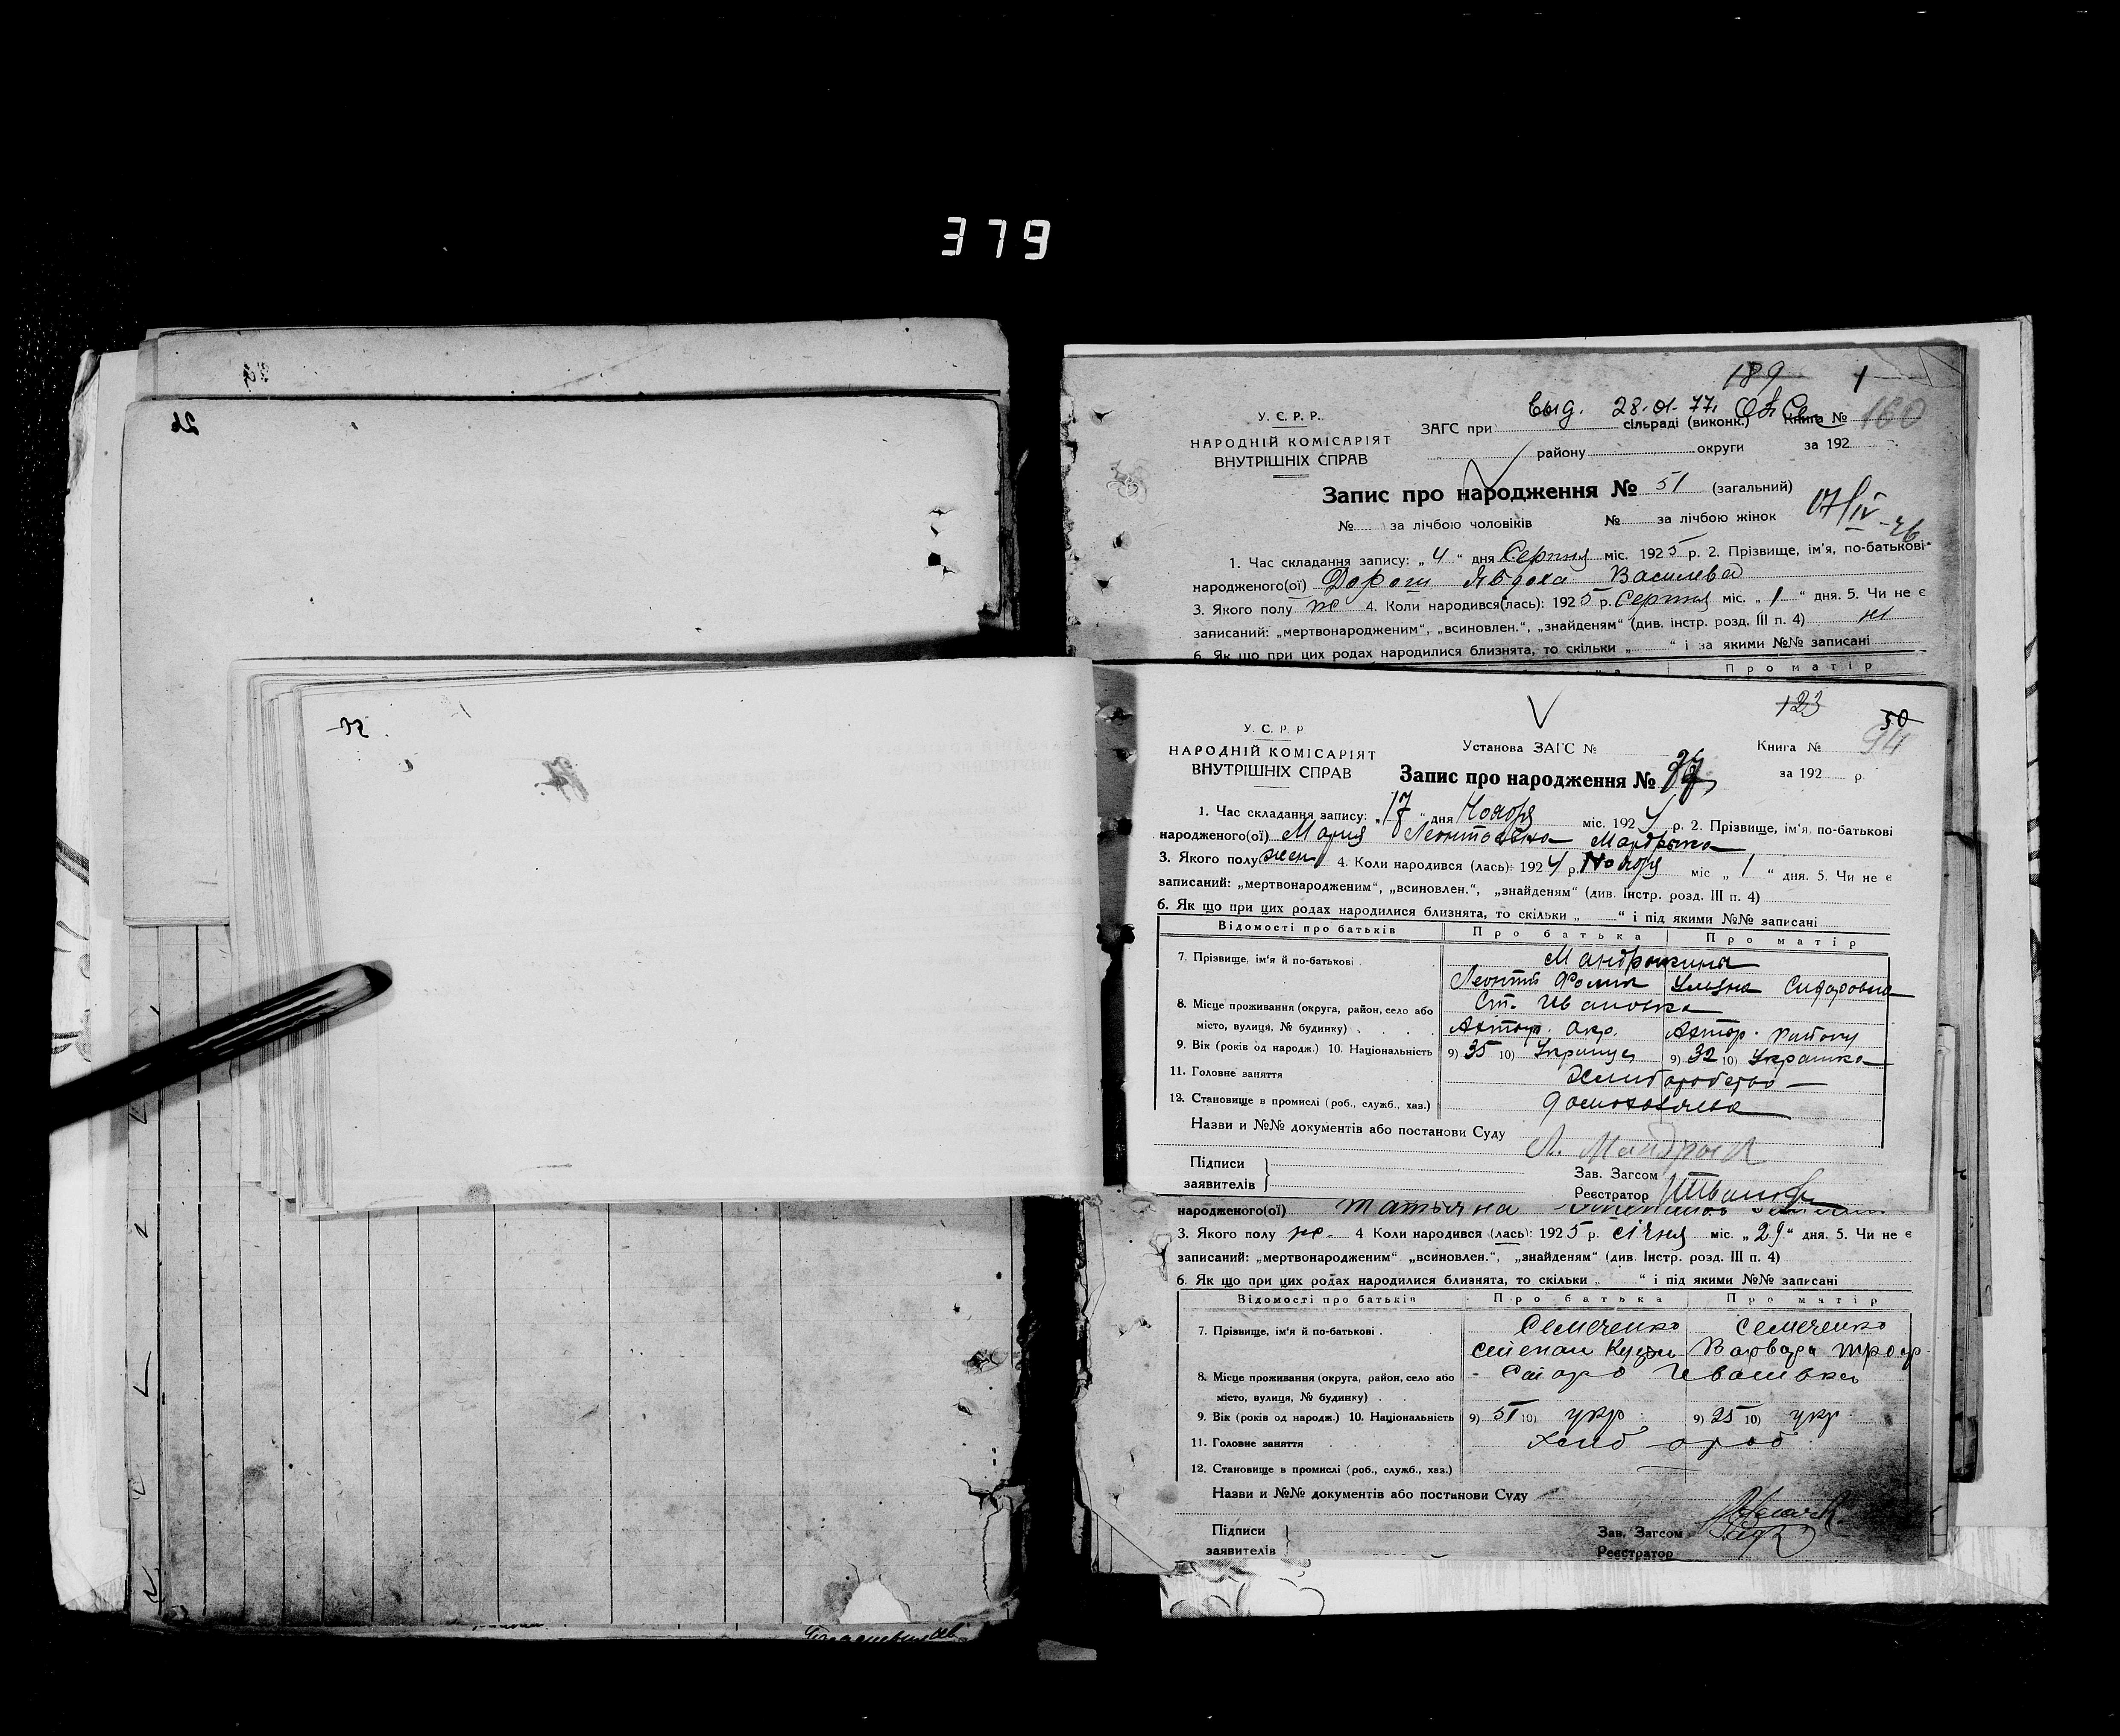 379
26
189 1
выд. 28.01.77.
У. С. Р. Р.
НАРОДНІЙ КОМІСАРІЯТ
ВНУТРІШНІХ СПРАВ
ЗАГС при сільраді (виконк.) Книга № 160
району округи за 192
Запис про народження № 51 (загальний)
№ за лічбою чоловіків № за лічбою жінок
17/IV-26
1. Час складання запису: „4“ дня Серпня міс. 1925 р. 2. Прізвище, ім'я, по-батькові
народженого(ої) Явдоха Василева
3. Якого полу ж 4. Коли народився(лась): 1925 р. Серпня міс. „1“ дня. 5. Чи не є
записаний: „мертвонародженим“, „всиновлен.“, „знайденям“ (див. інстр. розд. III п. 4) ні
6. Як що при цих родах народилися близнята, то скільки „ “ і за якими №№ записані
Про матір
123
50
94
У. С. Р. Р
НАРОДНІЙ КОМІСАРІЯТ
ВНУТРІШНІХ СПРАВ
Установа ЗАГС № Книга №
Запис про народження № за 192 р
1. Час складання запису: „17“ дня Ноября міс. 1924 р. 2. Прізвище, ім'я, по-батькові
народженого(ої) Мария Леонтьевна Мандрыка
3. Якого полу жен 4. Коли народився (лась): 1924 р. Ноября міс „1“ дня. 5. Чи не є
записаний: „мертвонародженим“, „всиновлен.“, „знайденям“ (див. Інстр. розд. III п. 4)
6. Як що при цих родах народилися близнята, то скільки „ “ і під якими №№ записані
Відомості про батьків Про батька Про матір
7. Прізвище, ім'я й по-батькові
Леонтий Фомич Сидоровна
8. Місце проживання (округа, район, село або Ст. Ивановка
місто, вулиця, № будинку) Ахтыр. окр. Ахтыр. району
9. Вік (років од народж.) 10. Національність 9) 35 10) Украинец 9) 32 10) Украинка
11. Головне заняття
12. Становище в промислі (роб., служб., хаз.)
Назви и №№ документів або постанови Суду
Л. Мандрыка
Підписи
заявителів
Зав. Загсом
Реєстратор
народженого(ої) Татьяна
3. Якого полу ж. 4 Коли народився (лась): 1925 р. січня міс. „29“ дня. 5. Чи не є
записаний: „мертвонародженим“ „всиновлен.“, „знайденям“ (див. Інстр. розд. III п. 4)
6. Як що при цих родах народилися близнята, то скільки „ “ і під якими №№ записані
Відомості про батьків Про батька Про матір
7. Прізвище, ім'я й по-батькові Семеченко Семеченко
Степан Варвара
8. Місце проживання (округа, район, село або Старо Ивановка
місто, вулиця, № будинку)
9. Вік (років од народж.) 10. Національність 9) 51 10) укр 9) 25 10) укр.
11. Головне заняття хліб ороб
12. Становище в промислі (роб., служб., хаз.)
Назви и №№ документів або постанови Суду
Підписи
заявителів
Зав. Загсом
Реєстратор